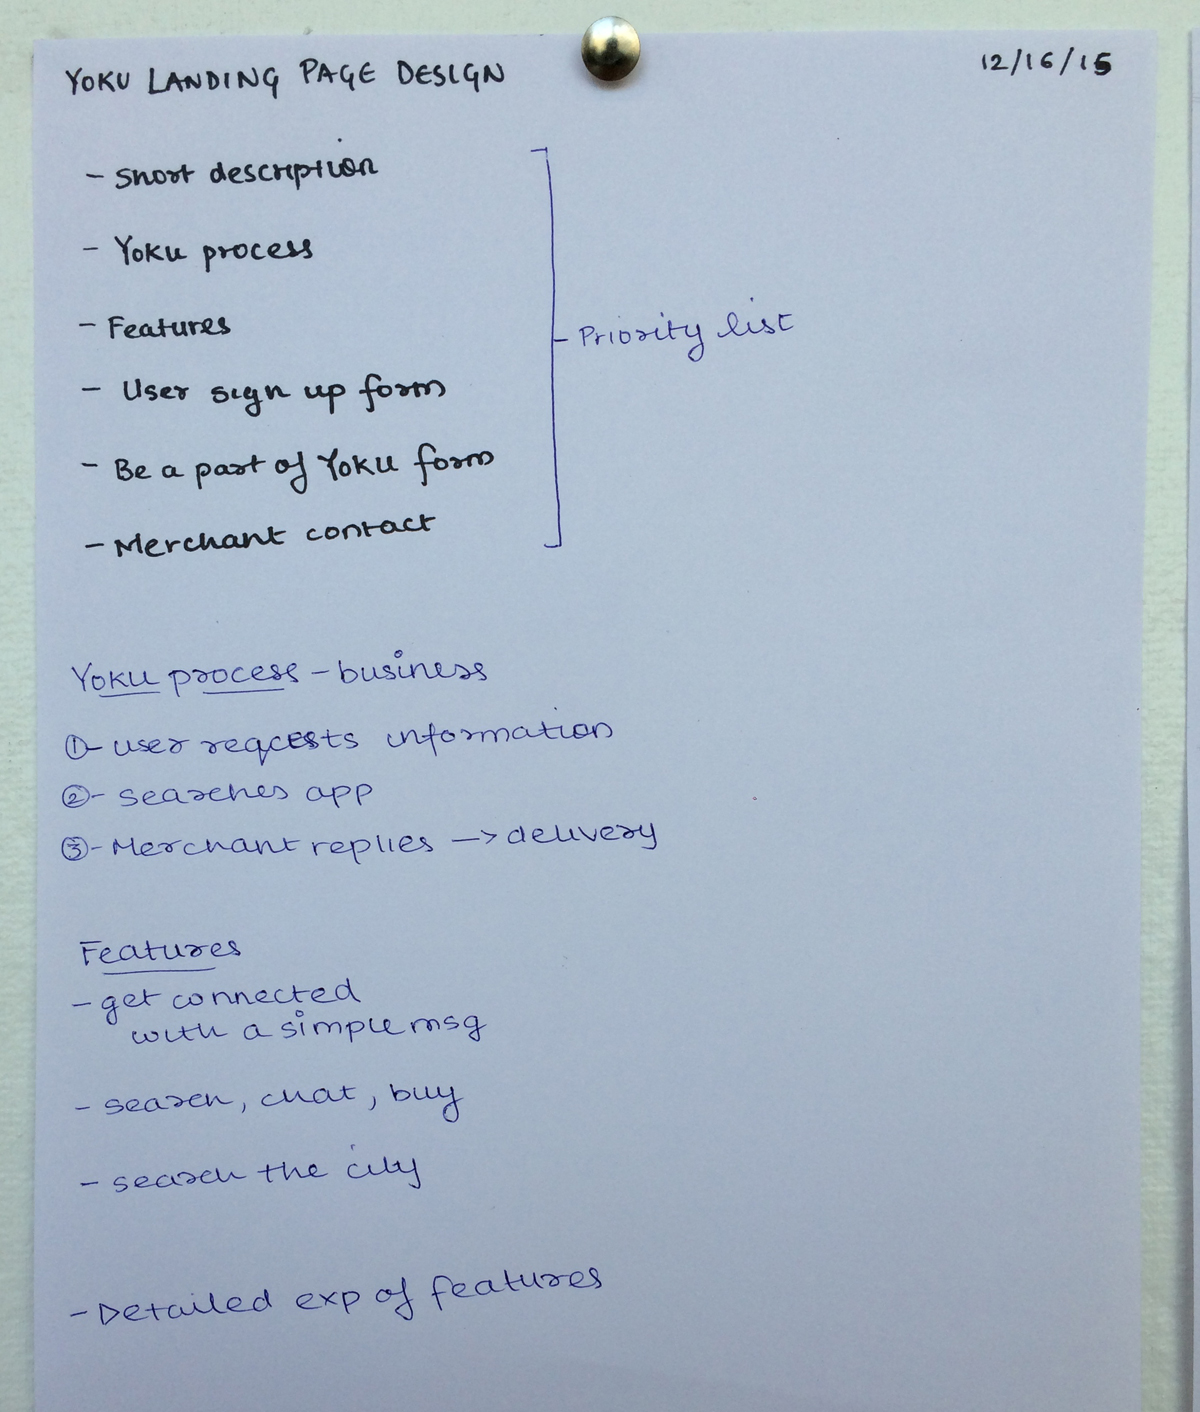 YOKU LANDING PAGE DESIGN
12/16/15
- Short description
- Yoku process
- Features
- User sign up form
- Be a part of Yoku form
- Merchant contact
- Priority list
Yoku process - business
①- user reqcests information
②- searches app
③- Merchant replies -> delivery
Features
- get connected
with a simple msg
- search, chat, buy
- search the city
- Detailed exp of features